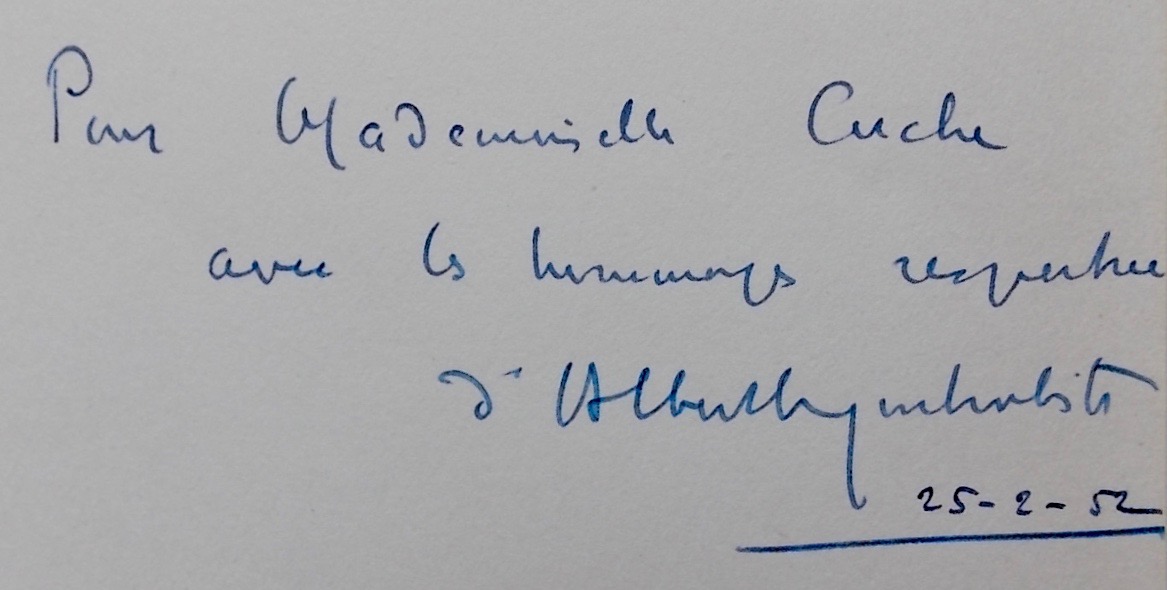 Pour Mademoiselle Cuche
avec les hommages respectueux
d'Albert
25-2-52